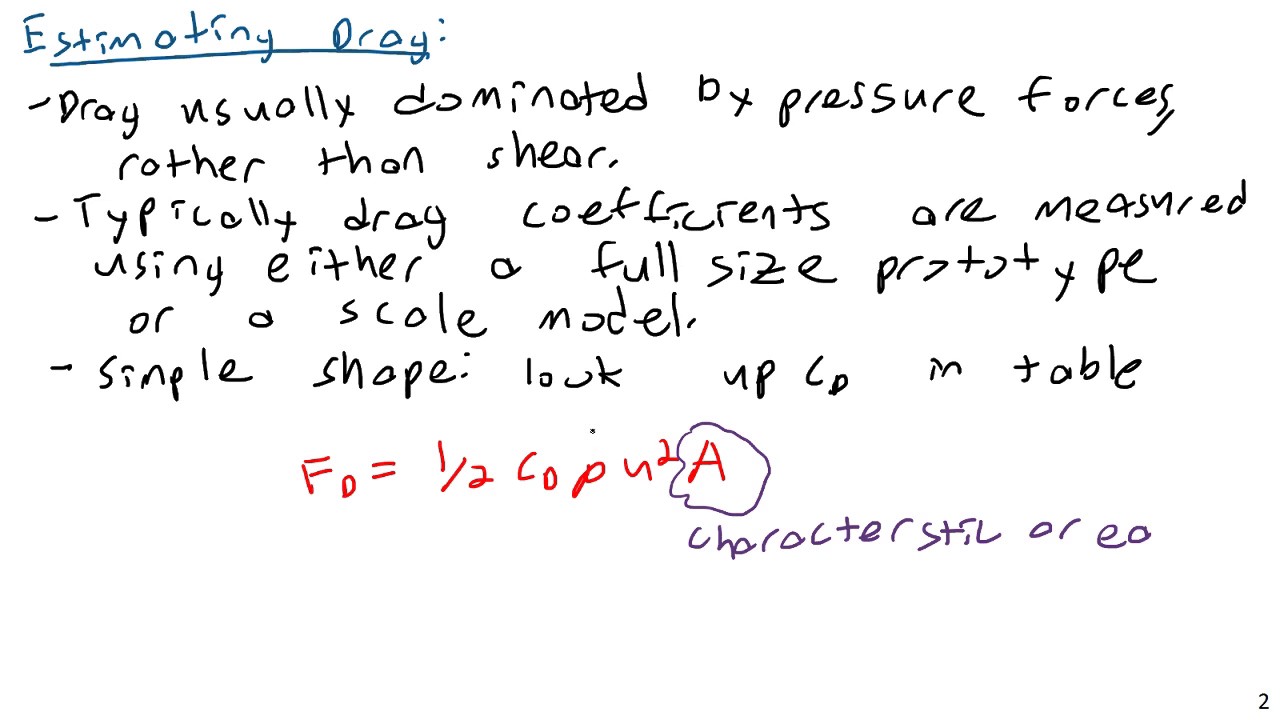 Estimating Drag:
- Drag usually dominated by pressure forces,
rather than shear.
- Typically drag coefficients are measured
using either a full size prototype
or a scale model.
- simple shape: look up C_D in table
F_D = 1/2 C_D ρ u² A
characterstic area
2